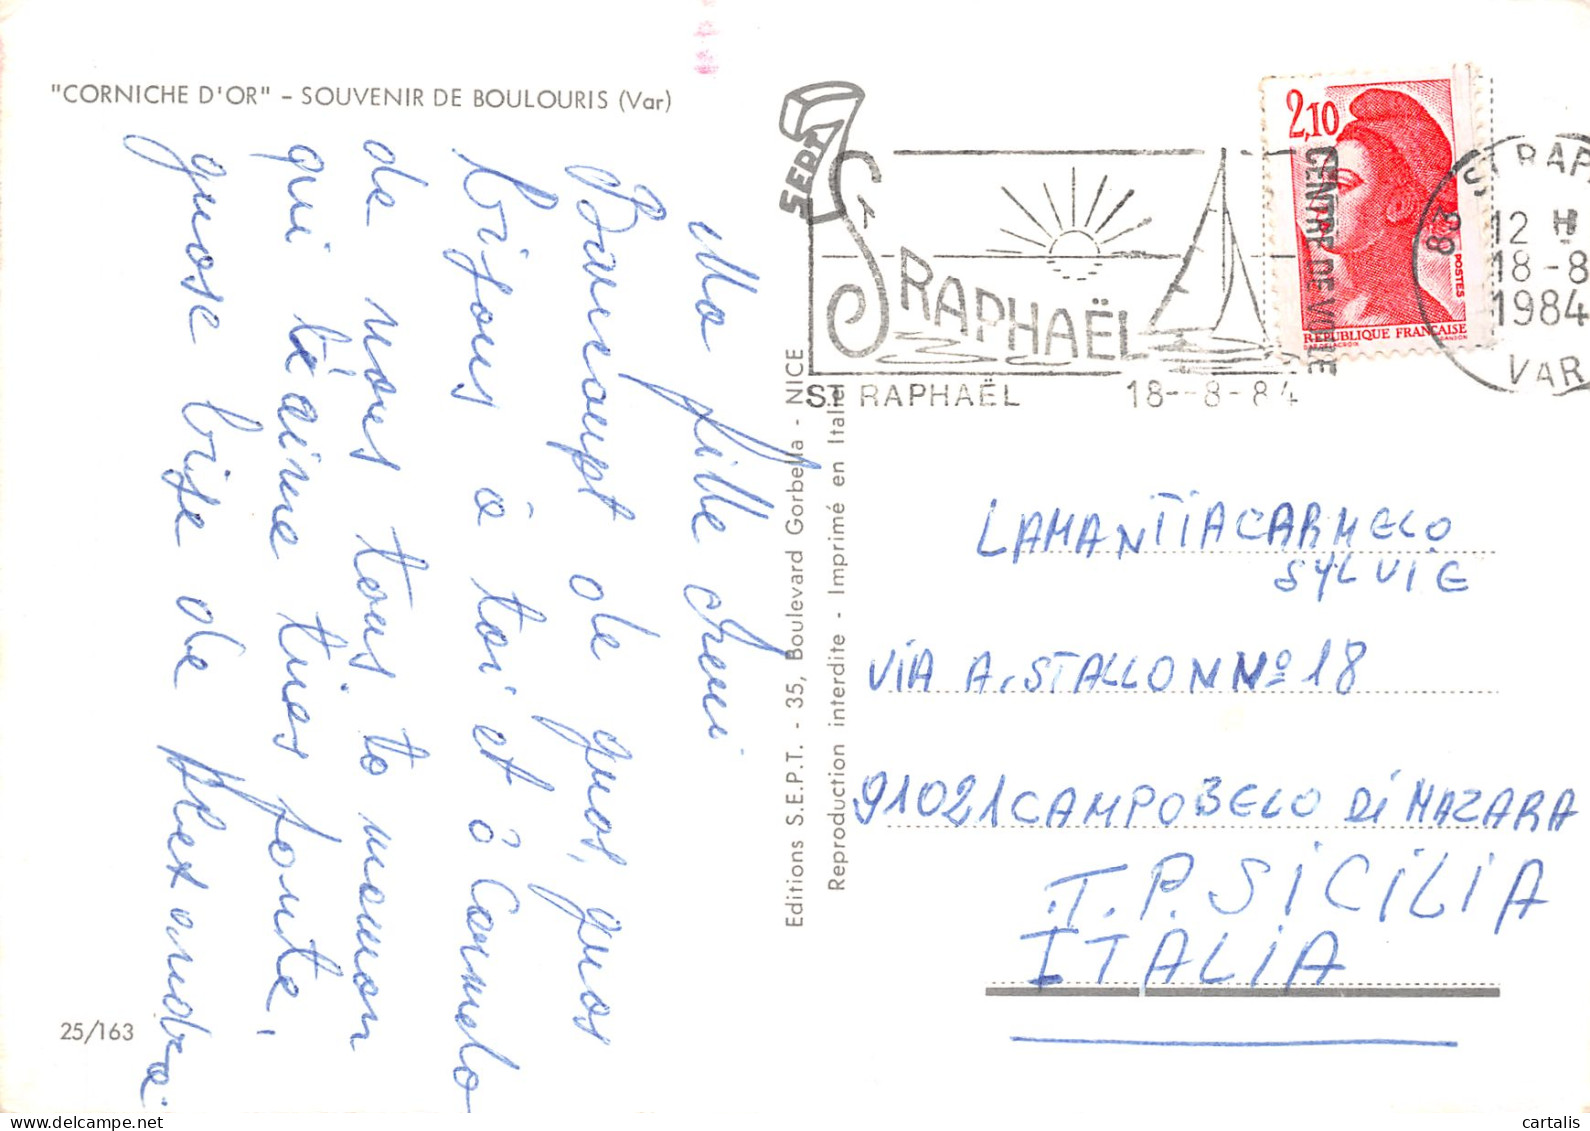 "CORNICHE D'OR" - SOUVENIR DE BOULOURIS (Var)
Ma fille cheri
Baucoupt de gros, gros
bisous à toi et à Carmelo
de nous tous. to maman
qui t'aime trios forte,
grose bise de Alexandra.
25/163
Editions S.E.P.T. - 35, Boulevard Gorbella - NICE
Reproduction interdite - Imprimé en Italie
SEPT
ST RAPHAËL
CENTRE DE VOILE
ST RAPHAËL 18-8-84
2,10
POSTES
REPUBLIQUE FRANÇAISE
ST RAP
83
12 H
18-8
1984
VAR
LAMANTIA CARMELO
SYLVIE
VIA A. STALLON Nº 18
91021 CAMPOBELO Di MAZARA
T.P. SICILIA
ITALIA
www.delcampe.net
cartes